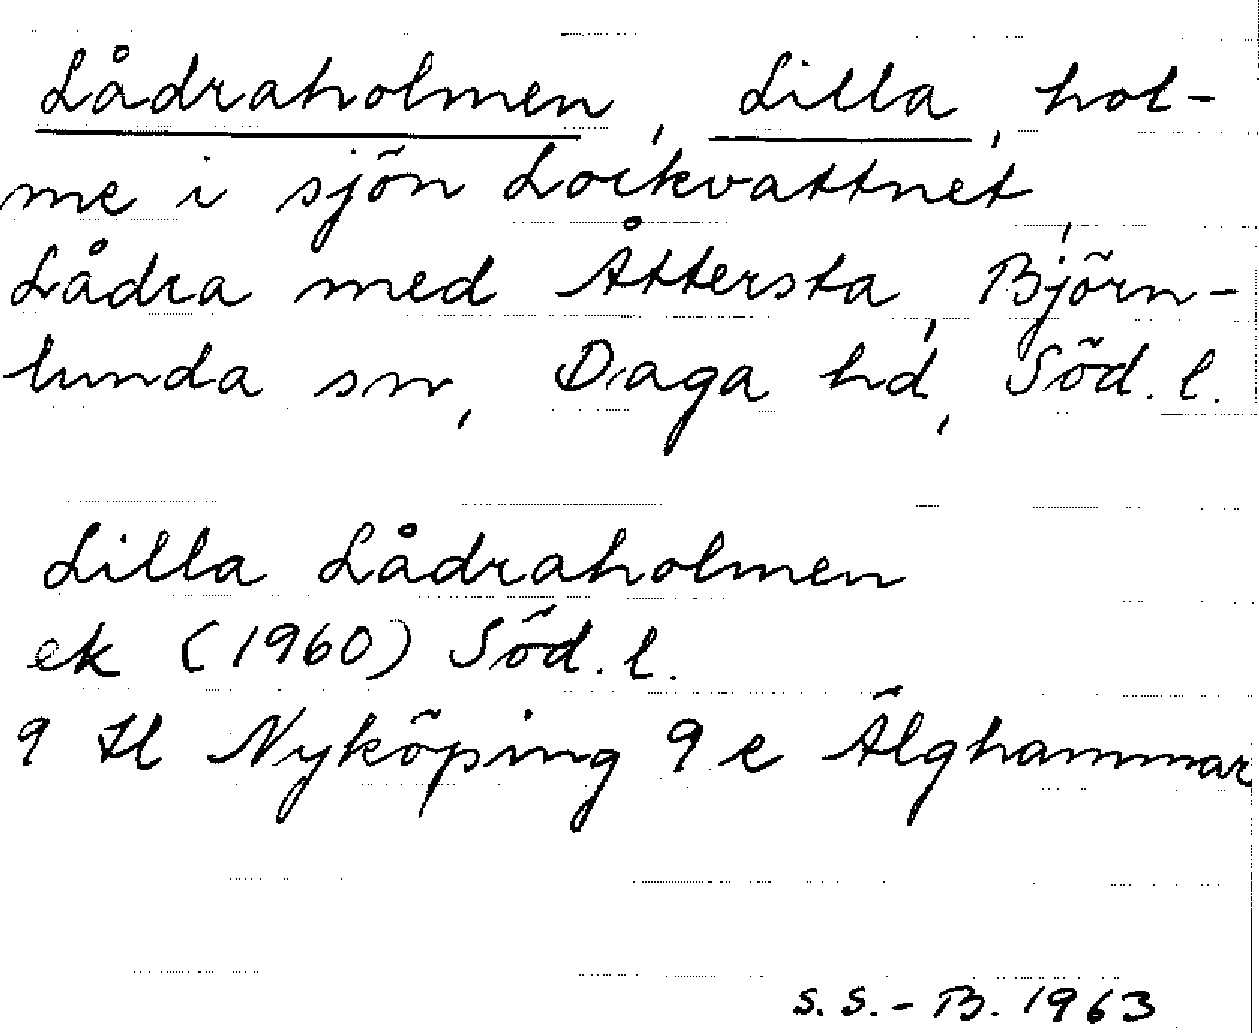 Lådraholmen, Lilla, hol-
me i sjön Lockvattnet,
Lådra med Åttersta, Björn-
lunda sn, Daga hd, Söd. l.
Lilla Lådraholmen
ek (1960) Söd. l.
9 Nyköping 9 e Älghammar
S.S.-B. 1963